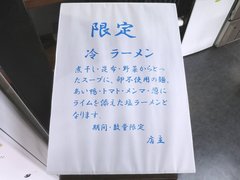 限定
冷 ラーメン
煮干し・昆布・野菜からとっ
たスープに、卵不使用の麺、
あい鴨・トマト・メンマ・葱に
ライムを添えた塩ラーメンと
なります。
期間・数量限定
店主